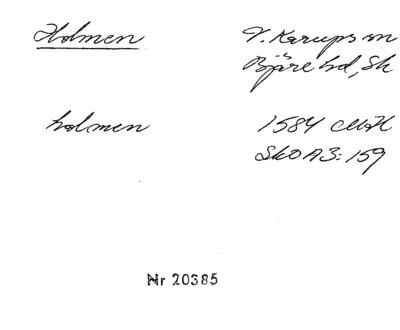 Holmen
V. Karups sn
Bjäre hd, Sk
holmen
1584 MH
SkOA3:159
Nr 20385